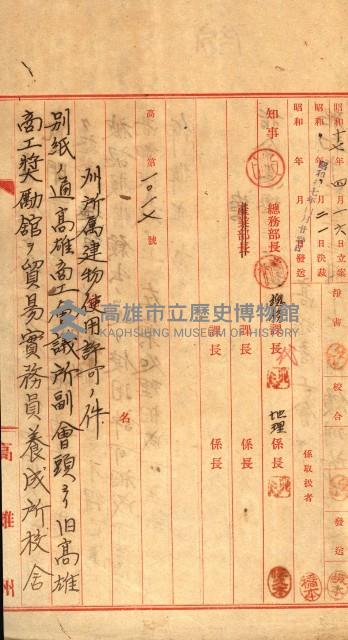 昭和十七年四月一六日立案
昭和　年　月二一日決裁
昭和　年　月　日發送
淨書
校合
發送
知事
總務部長
產業部長
課長
課長
課長
地理係長
係長
係長
係取扱者
橋本
高　第一〇一七號
名
州所屬建物使用許可ノ件
別紙ノ通高雄商工會議所副會頭ヨリ旧高雄
商工獎勵館ヲ貿易實務員養成所校舍
高雄州
高雄市立歷史博物館
KAOHSIUNG MUSEUM OF HISTORY